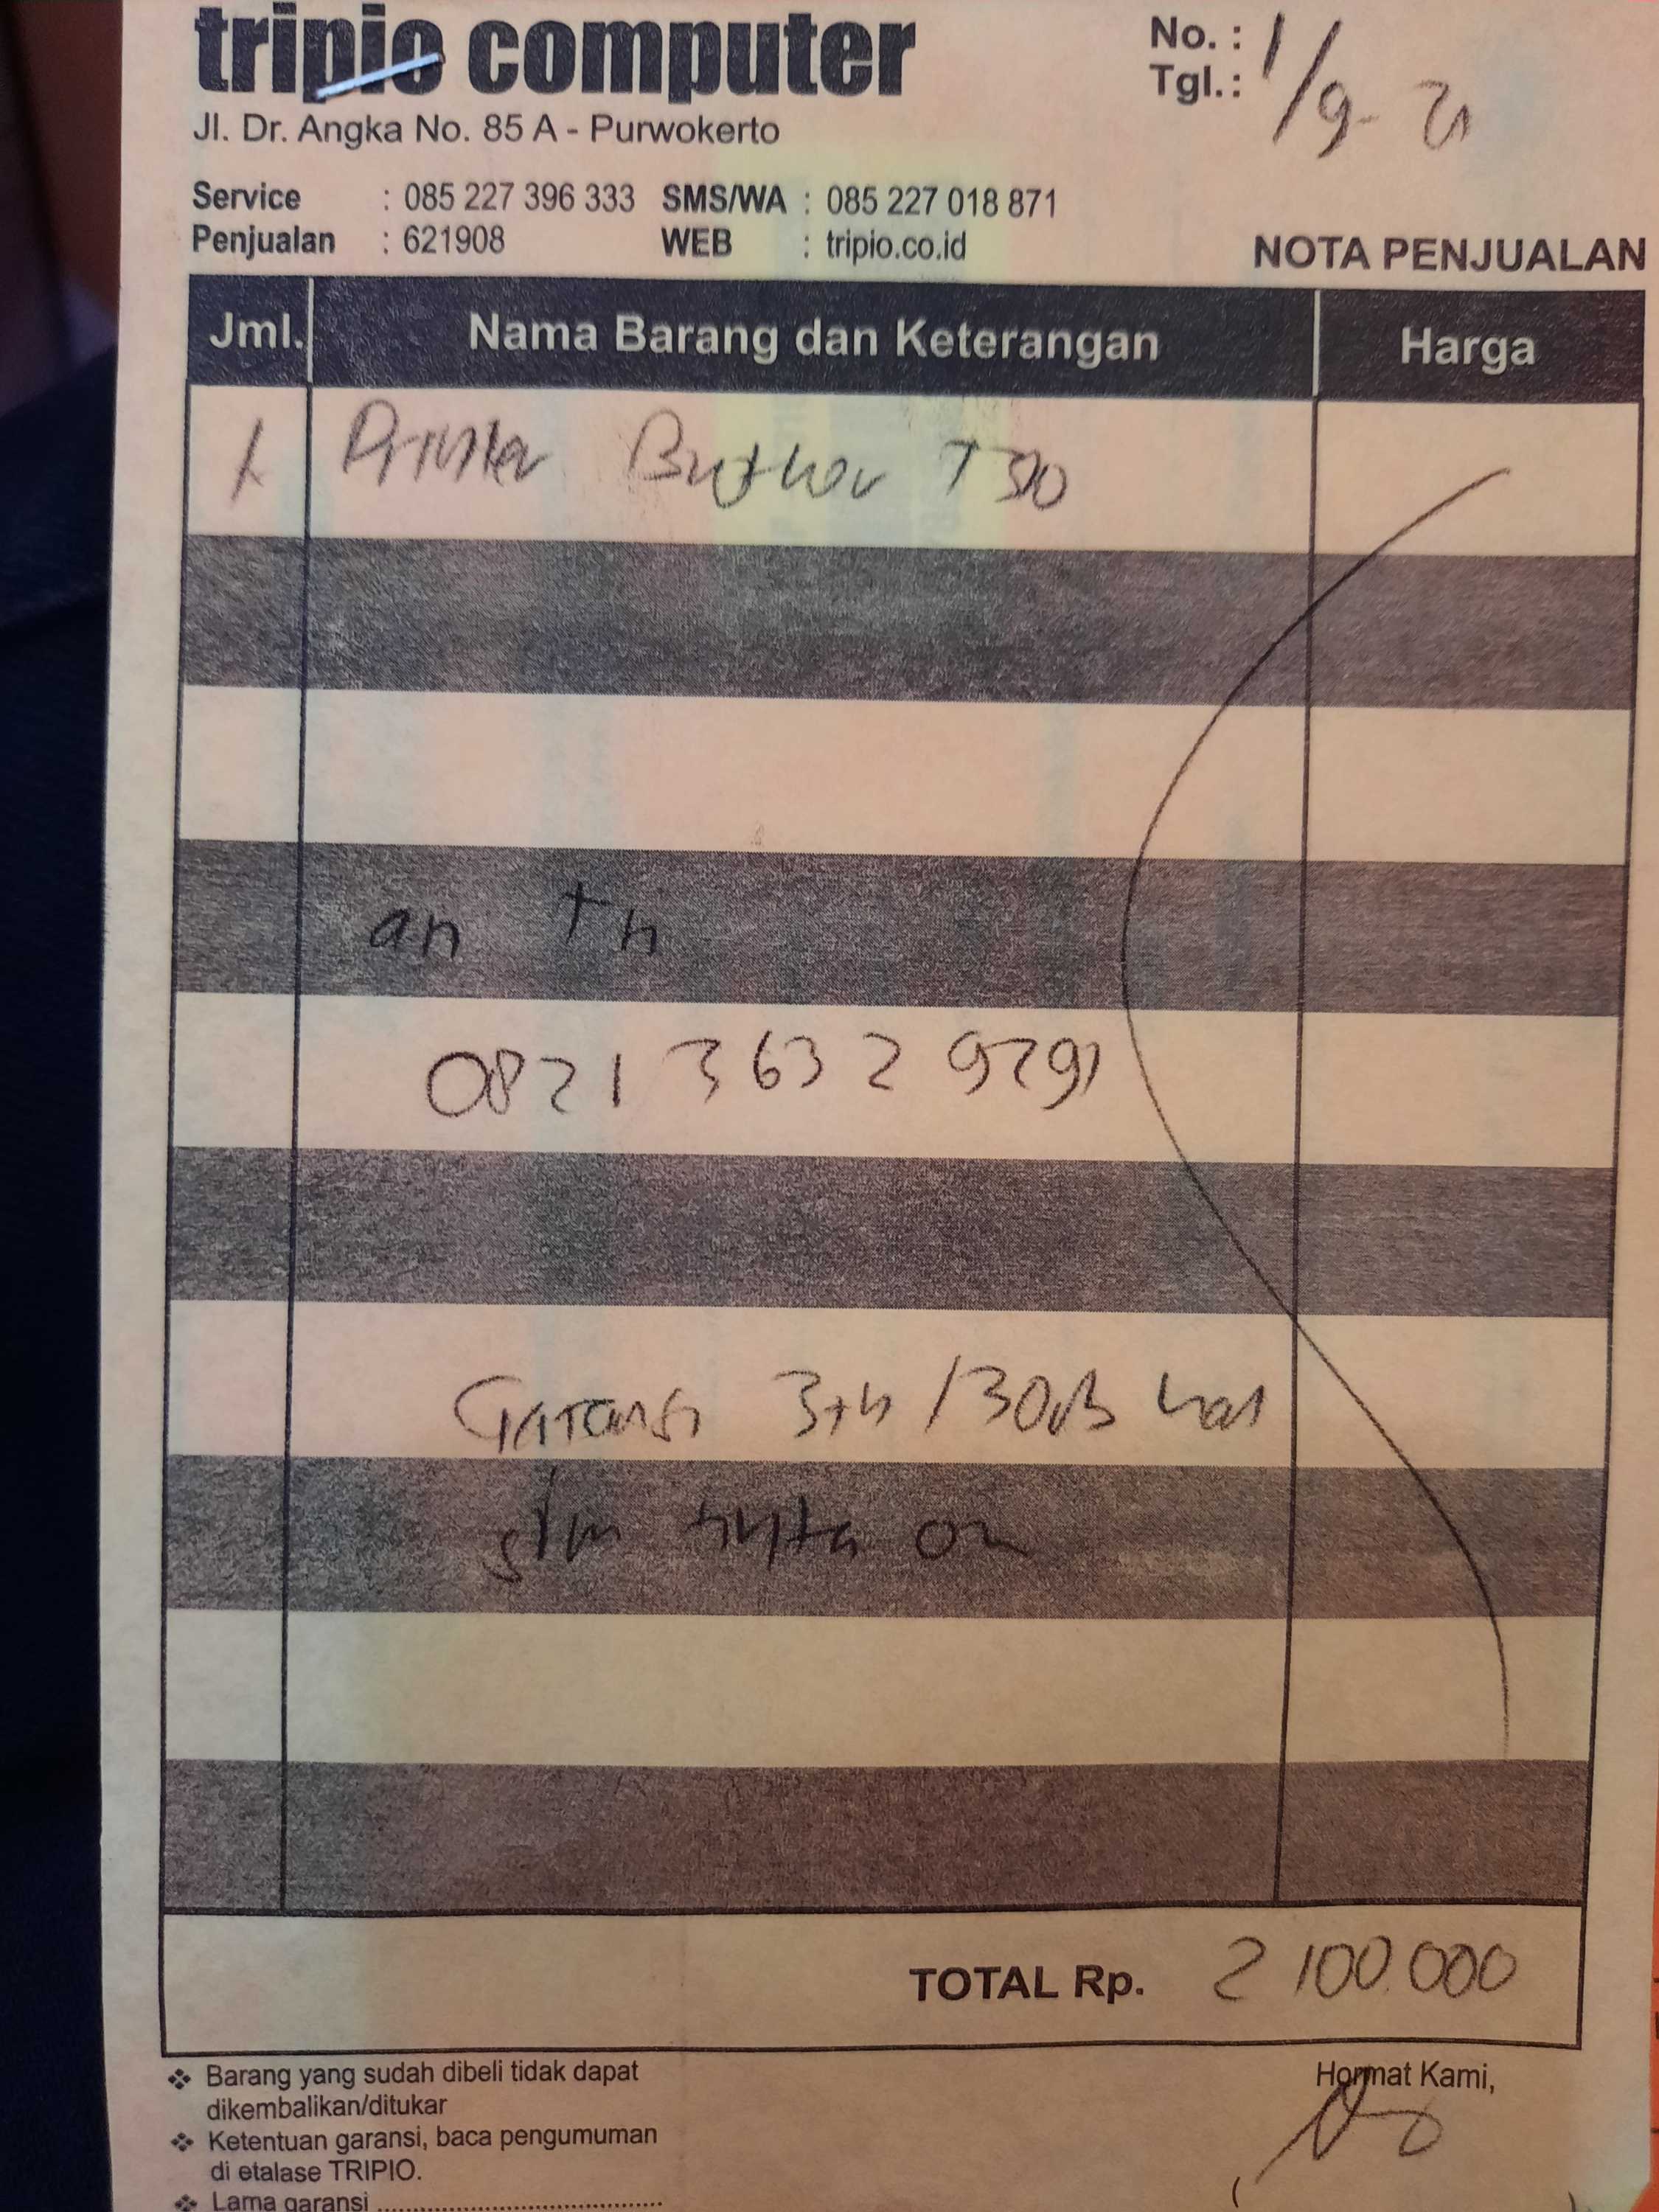 tripio computer
No. :
Tgl. : 1/9-21
Jl. Dr. Angka No. 85 A - Purwokerto
Service : 085 227 396 333 SMS/WA : 085 227 018 871
Penjualan : 621908 WEB : tripio.co.id
NOTA PENJUALAN
Jml. Nama Barang dan Keterangan Harga
1 Printer Brother T310
an
0821 3632 9291
Garansi 3th /30rb
tinta
TOTAL Rp. 2 100.000
❖ Barang yang sudah dibeli tidak dapat
dikembalikan/ditukar
❖ Ketentuan garansi, baca pengumuman
di etalase TRIPIO.
❖ Lama garansi
Hormat Kami,